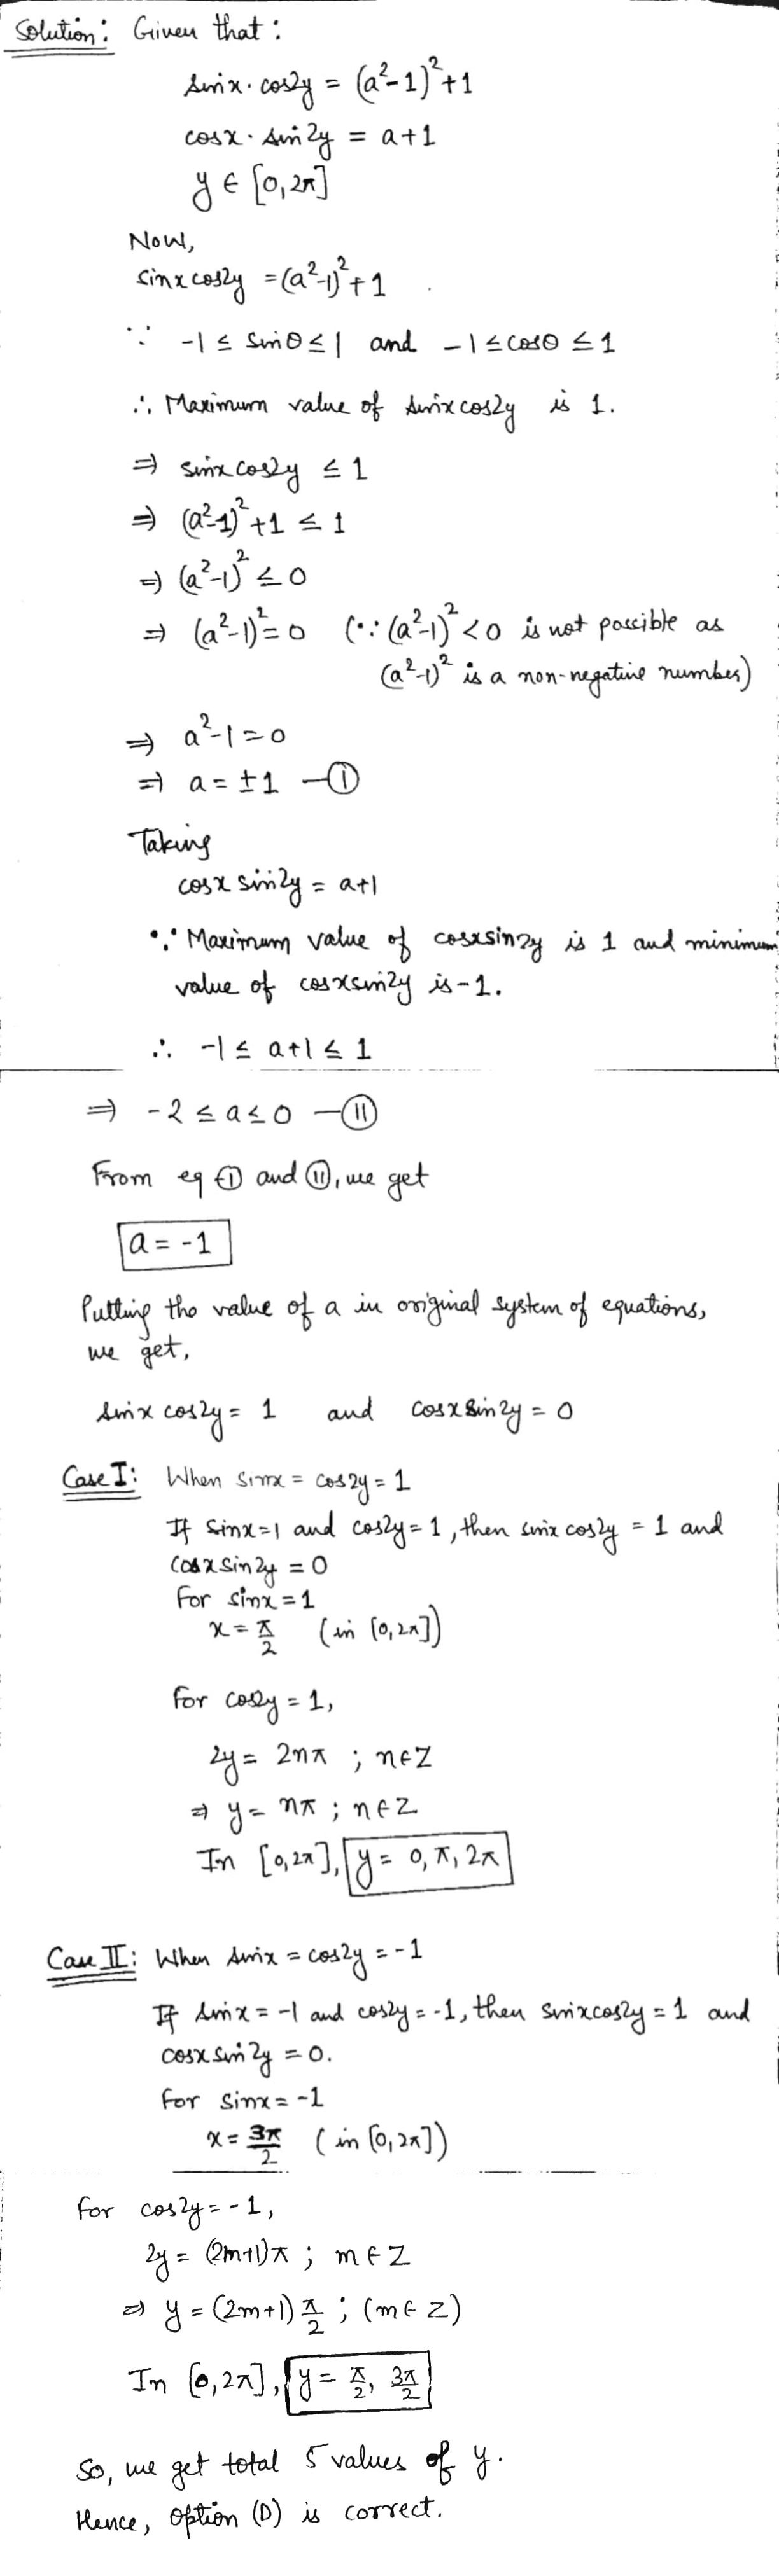 Solution: Given that:
sinx. cos2y = (a²-1)²+1
cosx. sin2y = a+1
y ∈ [0,2π]
Now,
sinx cos2y = (a²-1)²+1
∵ -1 ≤ sinθ ≤ 1 and -1 ≤ cosθ ≤ 1
∴ Maximum value of sinx cos2y is 1.
⇒ sinx cos2y ≤ 1
⇒ (a²-1)²+1 ≤ 1
⇒ (a²-1)² ≤ 0
⇒ (a²-1)² = 0 (∵ (a²-1)² < 0 is not possible as
(a²-1)² is a non-negative number)
⇒ a²-1=0
⇒ a = ±1 —Ⓘ
Taking
cosx sin2y = a+1
∵ Maximum value of cosxsin2y is 1 and minimum
value of cosxsin2y is -1.
∴ -1 ≤ a+1 ≤ 1
⇒ -2 ≤ a ≤ 0 —(II)
From eq Ⓘ and (II), we get
a = -1
Putting the value of a in original system of equations,
we get,
sinx cos2y = 1 and cosx sin2y = 0
Case I: When sinx = cos2y = 1
If sinx=1 and cos2y=1, then sinx cos2y = 1 and
cosx sin2y = 0
For sinx = 1
x = π/2 (in [0,2π])
For cos2y = 1,
2y = 2nπ ; n∈Z
⇒ y = nπ ; n∈Z
In [0,2π], y = 0, π, 2π
Case II: When sinx = cos2y = -1
If sinx = -1 and cos2y = -1, then sinxcos2y = 1 and
cosx sin2y = 0.
For sinx = -1
x = 3π/2 (in [0,2π])
For cos2y = -1,
2y = (2m+1)π ; m∈Z
⇒ y = (2m+1) π/2 ; (m∈Z)
In [0,2π], y = π/2, 3π/2
So, we get total 5 values of y.
Hence, option (D) is correct.